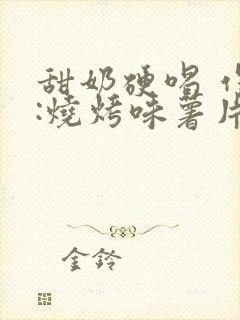 甜奶硬唱
:燒烤味薯片
金鈴